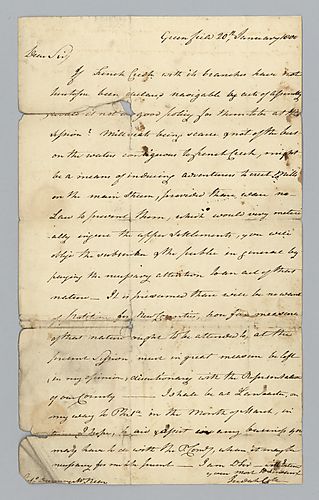 Greenfield 20th January 1800
Dear Sir,
If French Creek with its branches have not
heretofore been declared navigable by act of Assembly
it not a good policy for them to be at this
Session? Mill seats being scarce & not of the best
on the waters contiguous to French Creek, might
be a means of inducing adventurers to erect Mills
on the main stream, provided there were no
Law to prevent them, which would very mater-
ially injure the upper settlements, you will
oblige the subscriber & the public in general by
paying the necessary attention to an act of that
nature — It is presumed there will be no want
of Petitions for New Counties, how far measures
of that nature ought to be attended to, at the
present Session must in great measure be left
in my opinion, discretionary with the Representatives
of our County — I shall be at Lancaster, on
my way to Phila in the Month of March, in
I hope, to aid & assist in any business you
may have to do with the , when it may be
necessary for me to be present — I am Dear Sir
your most